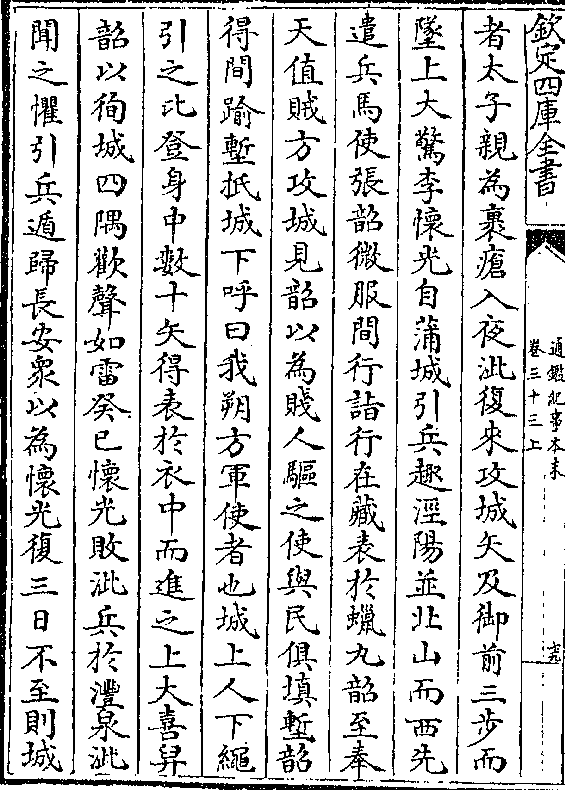 欽定四庫全書
通鑑紀事本末
卷三十三上
者太子親為裹瘡入夜泚復來攻城矢及御前三步而
墜上大驚李懷光自蒲城引兵趣涇陽並北山而西先
遣兵馬使張韶微服間行詣行在藏表於蠟丸韶至奉
天值賊方攻城見韶以為賤人驅之使與民俱填塹韶
得間踰塹抵城下呼曰我朔方軍使者也城上人下繩
引之比登身中數十矢得表於衣中而進之上大喜舁
韶以徇城四隅歡聲如雷癸巳懷光敗泚兵於澧泉泚
聞之懼引兵遁歸長安衆以為懷光復三日不至則城